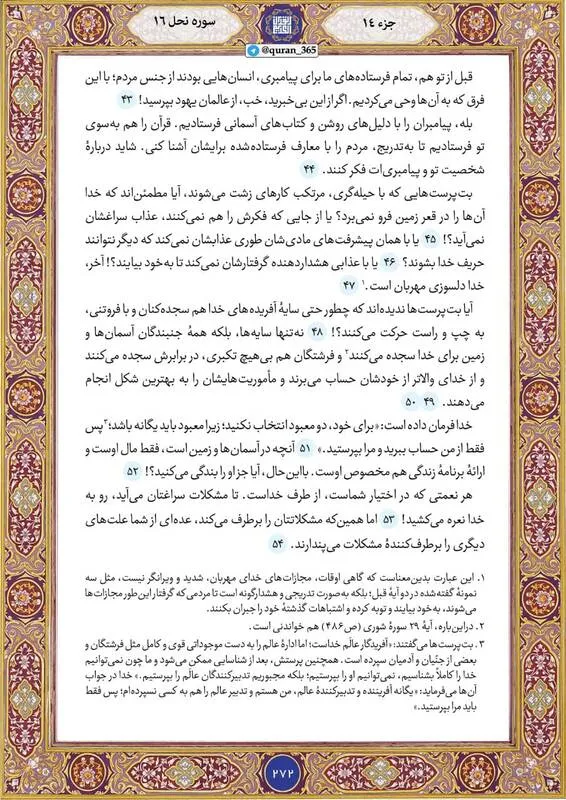 جزء ۱۴
سوره نحل ۱۶
@quran_365
قبل از تو هم، تمام فرستاده‌های ما برای پیامبری، انسان‌هایی بودند از جنس مردم؛ با این
فرق که به آن‌ها وحی می‌کردیم. اگر از این بی‌خبرید، خب، از عالمان یهود بپرسید! ۴۳
بله، پیامبران را با دلیل‌های روشن و کتاب‌های آسمانی فرستادیم. قرآن را هم به‌سوی
تو فرستادیم تا به‌تدریج، مردم را با معارف فرستاده‌شده برایشان آشنا کنی. شاید دربارهٔ
شخصیت تو و پیامبری‌ات فکر کنند. ۴۴
بت‌پرست‌هایی که با حیله‌گری، مرتکب کارهای زشت می‌شوند، آیا مطمئن‌اند که خدا
آن‌ها را در قعر زمین فرو نمی‌برد؟ یا از جایی که فکرش را هم نمی‌کنند، عذاب سراغشان
نمی‌آید؟! ۴۵ یا با همان پیشرفت‌های مادی‌شان طوری عذابشان نمی‌کند که دیگر نتوانند
حریف خدا بشوند؟ ۴۶ یا با عذابی هشداردهنده گرفتارشان نمی‌کند تا به‌خود بیایند؟! آخر،
خدا دلسوزی مهربان است.۱ ۴۷
آیا بت‌پرست‌ها ندیده‌اند که چطور حتی سایهٔ آفریده‌های خدا هم سجده‌کنان و با فروتنی،
به چپ و راست حرکت می‌کنند؟! ۴۸ نه‌تنها سایه‌ها، بلکه همهٔ جنبندگان آسمان‌ها و
زمین برای خدا سجده می‌کنند۲ و فرشتگان هم بی‌هیچ تکبری، در برابرش سجده می‌کنند
و از خدای والاتر از خودشان حساب می‌برند و مأموریت‌هایشان را به بهترین شکل انجام
می‌دهند. ۴۹ ۵۰
خدا فرمان داده است: «برای خود، دو معبود انتخاب نکنید؛ زیرا معبود باید یگانه باشد؛۳ پس
فقط از من حساب ببرید و مرا بپرستید.» ۵۱ آنچه در آسمان‌ها و زمین است، فقط مال اوست و
ارائهٔ برنامهٔ زندگی هم مخصوص اوست. بااین‌حال، آیا جز او را بندگی می‌کنید؟! ۵۲
هر نعمتی که در اختیار شماست، از طرف خداست. تا مشکلات سراغتان می‌آید، رو به
خدا نعره می‌کشید! ۵۳ اما همین‌که مشکلاتتان را برطرف می‌کند، عده‌ای از شما علت‌های
دیگری را برطرف‌کنندهٔ مشکلات می‌پندارند. ۵۴
۱. این عبارت بدین‌معناست که گاهی اوقات، مجازات‌های خدای مهربان، شدید و ویرانگر نیست، مثل سه
نمونهٔ گفته‌شده در دو آیهٔ قبل؛ بلکه به‌صورت تدریجی و هشدارگونه است تا مردمی که گرفتار این‌طور مجازات‌ها
می‌شوند، به‌خود بیایند و توبه کرده و اشتباهات گذشتهٔ خود را جبران بکنند.
۲. دراین‌باره، آیهٔ ۲۹ سورهٔ شوری (ص۴۸۶) هم خواندنی است.
۳. بت‌پرست‌ها می‌گفتند: «آفریدگار عالَم خداست؛ اما ادارهٔ عالم را به دست موجوداتی قوی و کامل مثل فرشتگان و
بعضی از جنّیان و آدمیان سپرده است. همچنین پرستش، بعد از شناسایی ممکن می‌شود و ما چون نمی‌توانیم
خدا را کاملاً بشناسیم، نمی‌توانیم او را بپرستیم؛ بلکه مجبوریم تدبیرکنندگان عالَم را بپرستیم.» خدا در جواب
آن‌ها می‌فرماید: «یگانه آفریننده و تدبیرکنندهٔ عالم، من هستم و تدبیر عالم را هم به کسی نسپرده‌ام؛ پس فقط
باید مرا بپرستید.»
۲۷۲